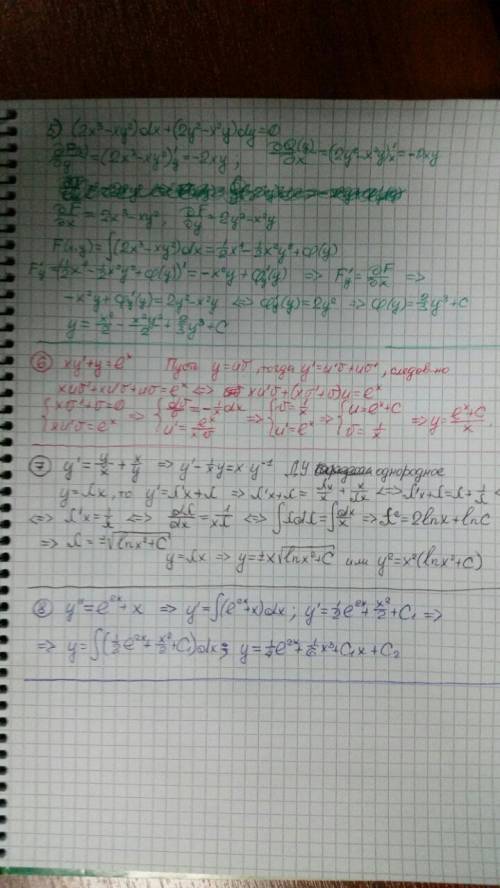 5) (2x³-xy²)dx+(2y²-x²y)dy=0
=(2x³-xy²)'y=-2xy; ∂Q(y)/∂x=(2y²-x²y)'x=-2xy
∂F/∂x=2x³-xy², ∂F/∂y=2y²-x²y
F(x,y)=∫(2x³-xy²)dx=½x⁴-½x²y²+φ(y)
F'y=(½x⁴-½x²y²+φ(y))'=-x²y+φ'y(y) ⇒ F'y=∂F/∂x ⇒
-x²y+φ'y(y)=2y²-x²y ⇔ φ'y(y)=2y² ⇒ φ(y)=⅔y³+C
y=x⁴/2-x²y²/2+⅔y³+C
⑥ xy'+y=eˣ Пусть y=uσ, тогда y'=u'σ+uσ', следов-но
xuσ'+xu'σ+uσ=eˣ ⇔ xu'σ+(xσ'+σ)u=eˣ
{xσ'+σ=0 ; xu'σ=eˣ ⇒ {dσ/σ=-1/x dx ; u'=eˣ/xσ ⇒ {σ=1/x ; u'=eˣ ⇒ {u=eˣ+C ; σ=1/x ⇒ y=(eˣ+C)/x.
⑦ y'=y/x+x/y ⇒ y'-1/x y=x y⁻¹ ДУ однородное
y=λx, то y'=λ'x+λ ⇒ λ'x+λ=λx/x+x/λx ⇔ λ'x+λ=λ+1/λ ⇔
⇔ λ'x=1/λ ⇔ dλ/dx=1/xλ ⇔ ∫λdλ=∫dx/x ⇒ λ²=2lnx+lnC
⇒ λ=±√(lnx²+C)
y=λx ⇒ y=±x√(lnx²+C) или y²=x²(lnx²+C)
⑧ y''=e²ˣ+x ⇒ y'=∫(e²ˣ+x)dx; y'=½e²ˣ+x²/2+C₁ ⇒
⇒ y=∫(½e²ˣ+x²/2+C₁)dx; y=¼e²ˣ+⅙x³+C₁x+C₂